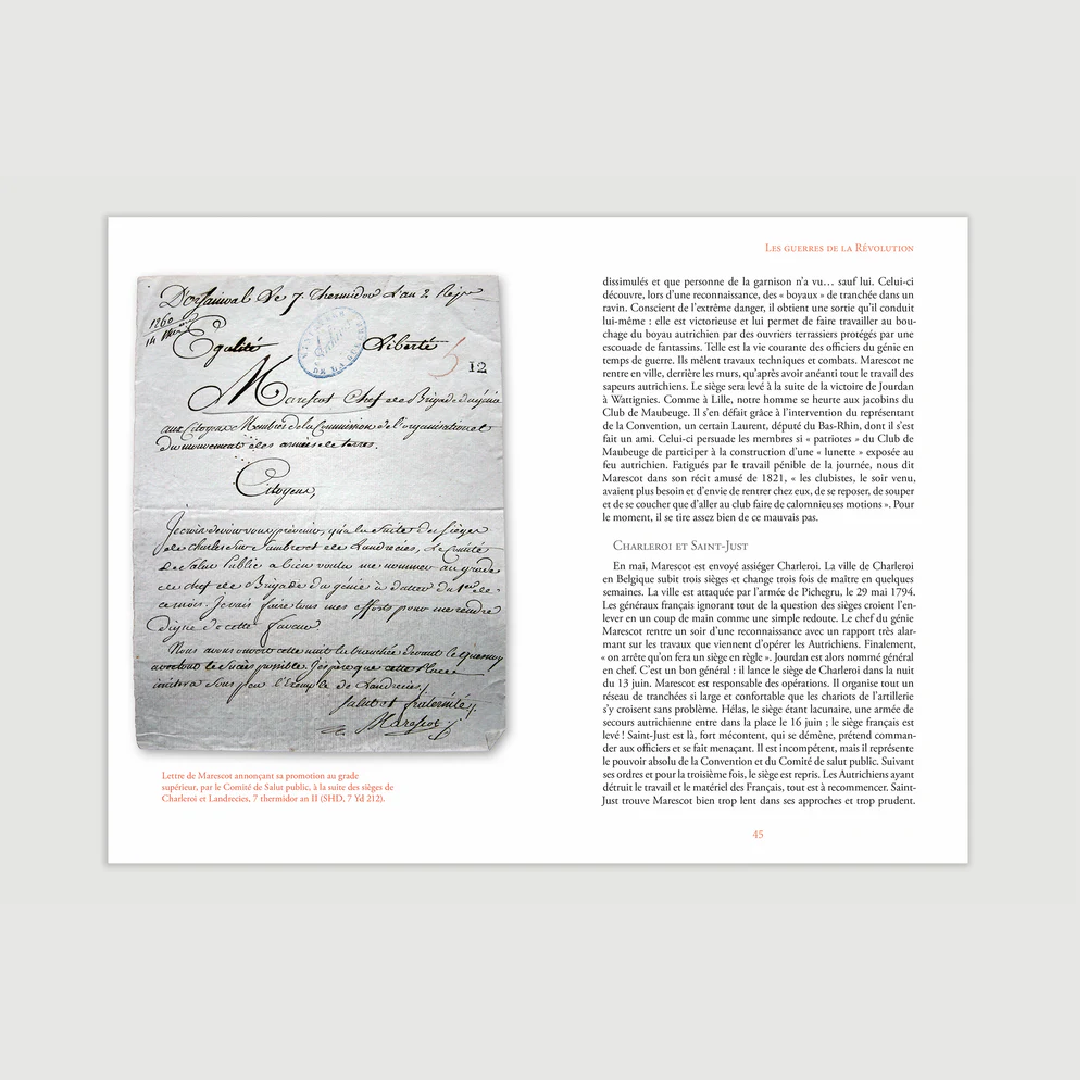 Égalité Liberté
12
Marescot Chef de Brigade du génie
aux Citoyens Membres de la Commission de l'organisation et
du mouvement des armées de terre.
Citoyens,
Je crois devoir vous prévenir, qu'à la suite des sièges
de charles sur Sambre et de Landrecies, le comité
de Salut Public a bien voulu me nommer au grade
de chef de Brigade du génie à dater du 1er de
ce mois. Je vais faire tous mes efforts pour me rendre
digne de cette faveur.
Nous avons ouvert cette nuit la tranchée devant le quesnoy
avec tout le succès possible. J'espère que cette place
imitera sous peu l'exemple de Landrecies,
Salut et fraternité,
Marescot
Lettre de Marescot annonçant sa promotion au grade
supérieur, par le Comité de Salut public, à la suite des sièges de
Charleroi et Landrecies. 7 thermidor an II (SHD, 7 Yd 212).
Les guerres de la Révolution
dissimulés et que personne de la garnison n'a vu… sauf lui. Celui-ci
découvre, lors d'une reconnaissance, des « boyaux » de tranchée dans un
ravin. Conscient de l'extrême danger, il obtient une sortie qu'il conduit
lui-même : elle est victorieuse et lui permet de faire travailler au bou-
chage du boyau autrichien par des ouvriers terrassiers protégés par une
escouade de fantassins. Telle est la vie courante des officiers du génie en
temps de guerre. Ils mêlent travaux techniques et combats. Marescot ne
rentre en ville, derrière les murs, qu'après avoir anéanti tout le travail des
sapeurs autrichiens. Le siège sera levé à la suite de la victoire de Jourdan
à Wattignies. Comme à Lille, notre homme se heurte aux jacobins du
Club de Maubeuge. Il s'en défait grâce à l'intervention du représentant
de la Convention, un certain Laurent, député du Bas-Rhin, dont il s'est
fait un ami. Celui-ci persuade les membres si « patriotes » du Club de
Maubeuge de participer à la construction d'une « lunette » exposée au
feu autrichien. Fatigués par le travail pénible de la journée, nous dit
Marescot dans son récit amusé de 1821, « les clubistes, le soir venu,
avaient plus besoin et d'envie de rentrer chez eux, de se reposer, de souper
et de se coucher que d'aller au club faire de calomnieuses motions ». Pour
le moment, il se tire assez bien de ce mauvais pas.
Charleroi et Saint-Just
En mai, Marescot est envoyé assiéger Charleroi. La ville de Charleroi
en Belgique subit trois sièges et change trois fois de maître en quelques
semaines. La ville est attaquée par l'armée de Pichegru, le 29 mai 1794.
Les généraux français ignorant tout de la question des sièges croient l'en-
lever en un coup de main comme une simple redoute. Le chef du génie
Marescot rentre un soir d'une reconnaissance avec un rapport très alar-
mant sur les travaux que viennent d'opérer les Autrichiens. Finalement,
« on arrête qu'on fera un siège en règle ». Jourdan est alors nommé général
en chef. C'est un bon général : il lance le siège de Charleroi dans la nuit
du 13 juin. Marescot est responsable des opérations. Il organise tout un
réseau de tranchées si large et confortable que les chariots de l'artillerie
s'y croisent sans problème. Hélas, le siège étant lacunaire, une armée de
secours autrichienne entre dans la place le 16 juin ; le siège français est
levé ! Saint-Just est là, fort mécontent, qui se démène, prétend comman-
der aux officiers et se fait menaçant. Il est incompétent, mais il représente
le pouvoir absolu de la Convention et du Comité de salut public. Suivant
ses ordres et pour la troisième fois, le siège est repris. Les Autrichiens ayant
détruit le travail et le matériel des Français, tout est à recommencer. Saint-
Just trouve Marescot bien trop lent dans ses approches et trop prudent.
45